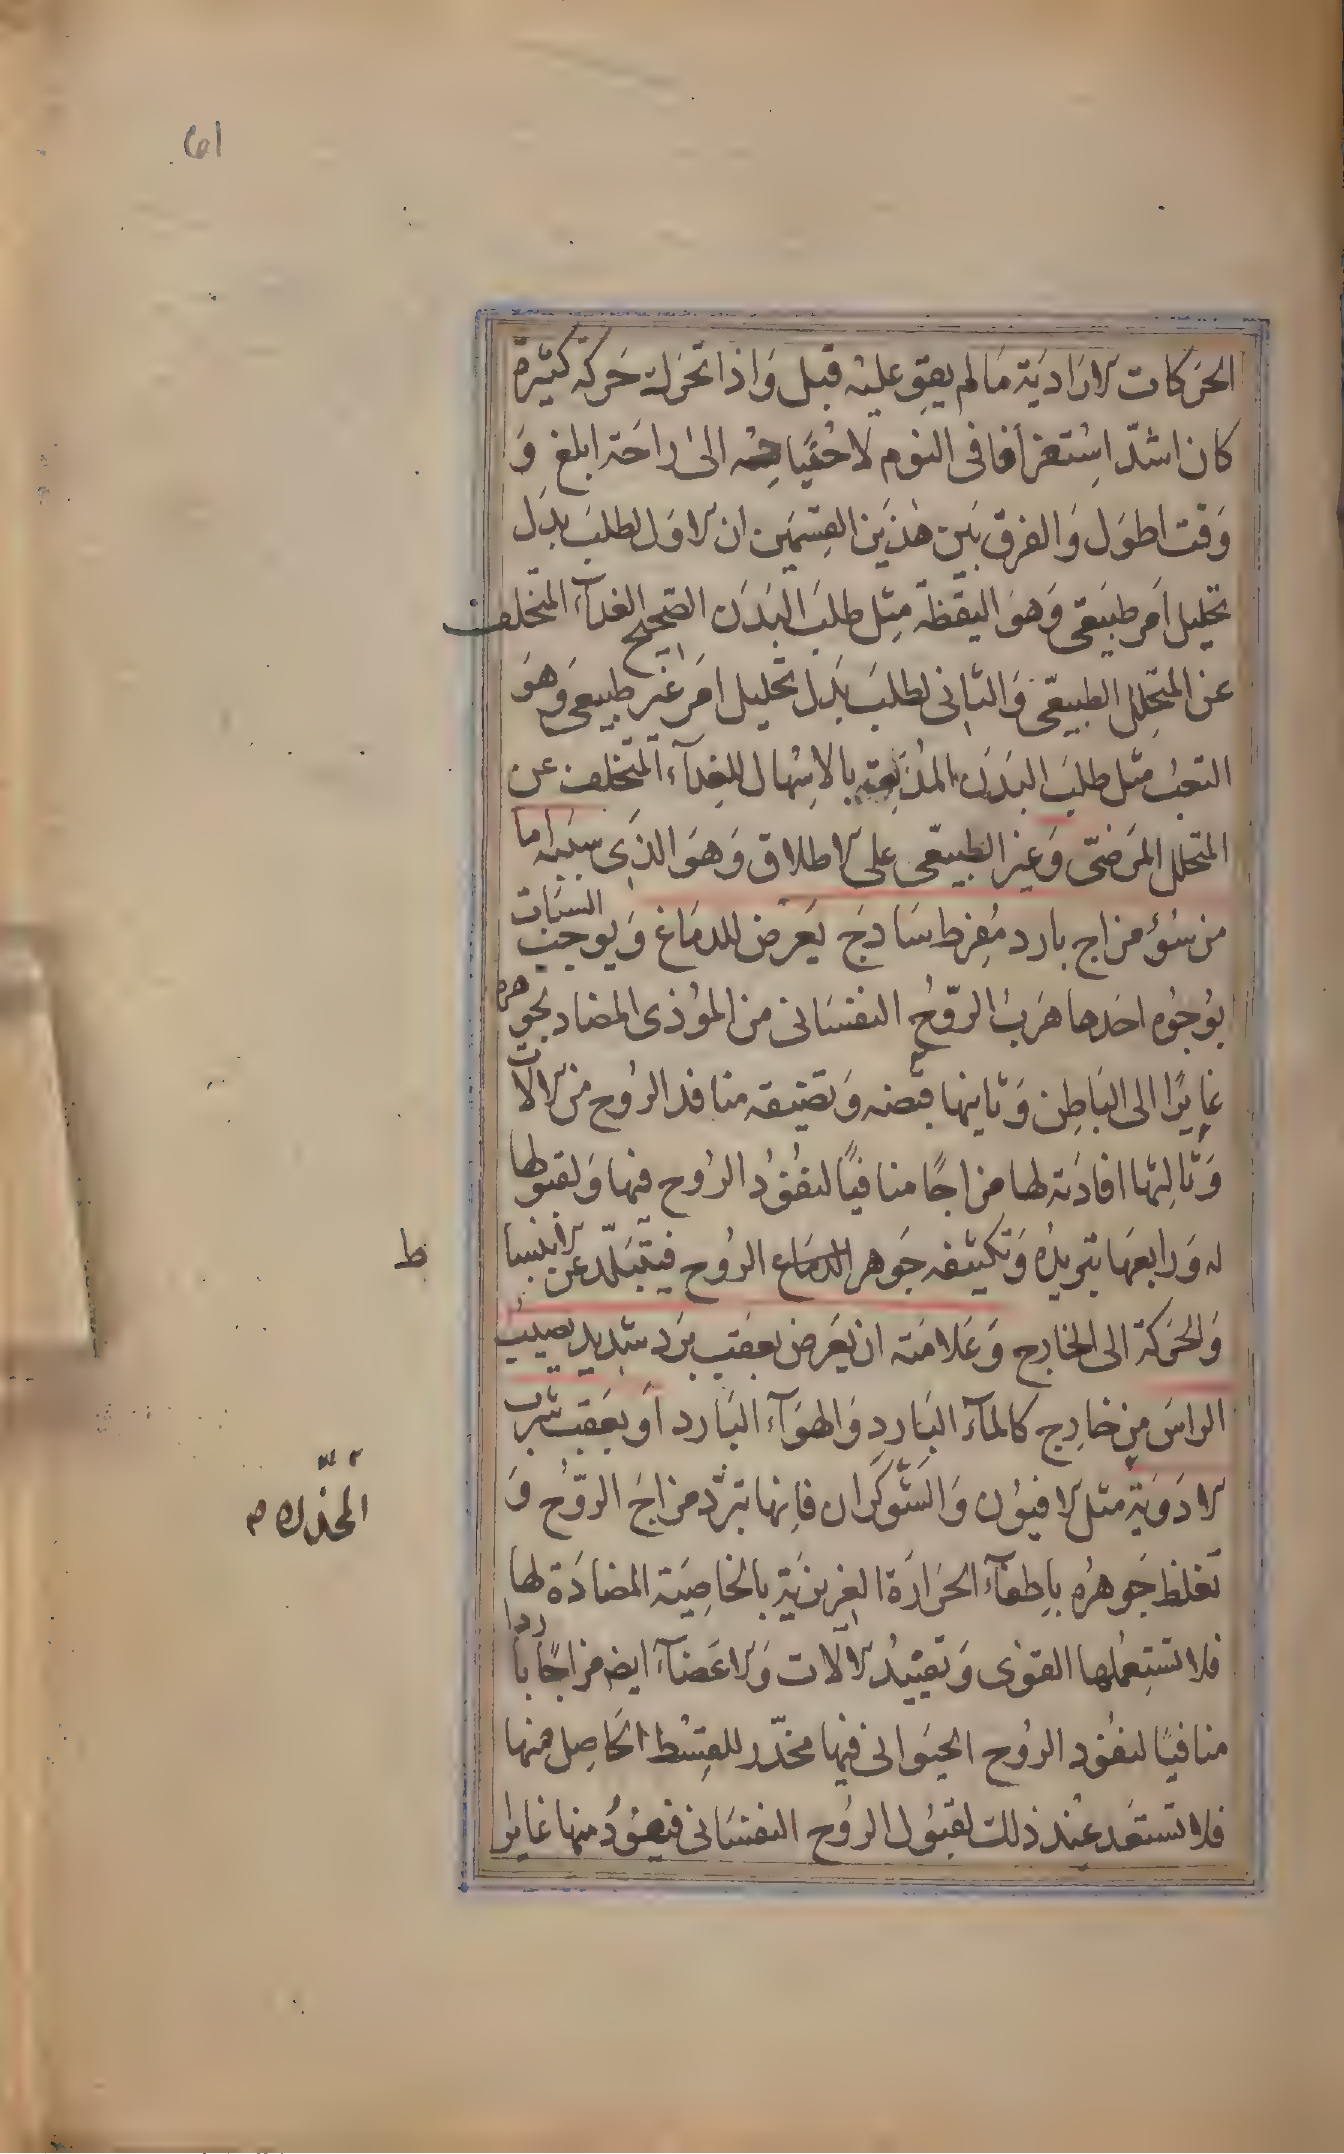 الحركات الارادية مالم يقو عليه قبل واذا تحرك حركة كثيرة
كان اشدّ استغراقا فى النوم لاحتياجه الىٰ راحة ابلغ و
وقت اطول والفرق بين هٰذين القسمين ان الاول لطلب بدل
تحليل امر طبيعى وهو اليقظة مثل طلب البدن الصحيح الغذآء المتخلف
عن المتحلل الطبيعى والثانى لطلب بدل تحليل امر غير طبيعى وهو
التعب مثل طلب البدن بالاسهال للغذآء المتخلف عن
المتحلل المرضىّ وغير الطبيعى على الاطلاق وهو الذى سببه اما
من سوء مزاج بارد مفرط سادج يعرض للدماغ ويوجب السبات
بوجوه احدها هرب الروح النفسانى من الموذى المضاد لجوهره
غايرًا الى الباطن وثانيها قبضه وتضيقه منافذ الروح من الالات
وثالثها افادته لها مزاجًا منافيًا لنفوذ الروح فيها ولقبولها
له ورابعها تبريده وتكثيفه جوهر الدماغ الروح فيتبلّد عن الانبساط
والحركة الى الخارج وعلامته ان يعرض بعقب برد شديد يصيب
الراس من خارج كالمآء البارد والهوآء البارد او بعقب شرب
الادوية مثل الافيون والشوكران فانها تبرّد مزاج الروح و
تغلظ جوهره باطفآء الحرارة الغريزية بالخاصية المضادة لها
فلا تستعملها القوى وتفيد الالات والاعضآء ايضه مزاجًا باردا
منافيًا لنفوذ الروح الحيوانى فيها مخدّر للقسط الحاصل منها
فلا تستعد عند ذلك لقبول الروح النفسانى فيعود منها غايرا
المخدّرة م